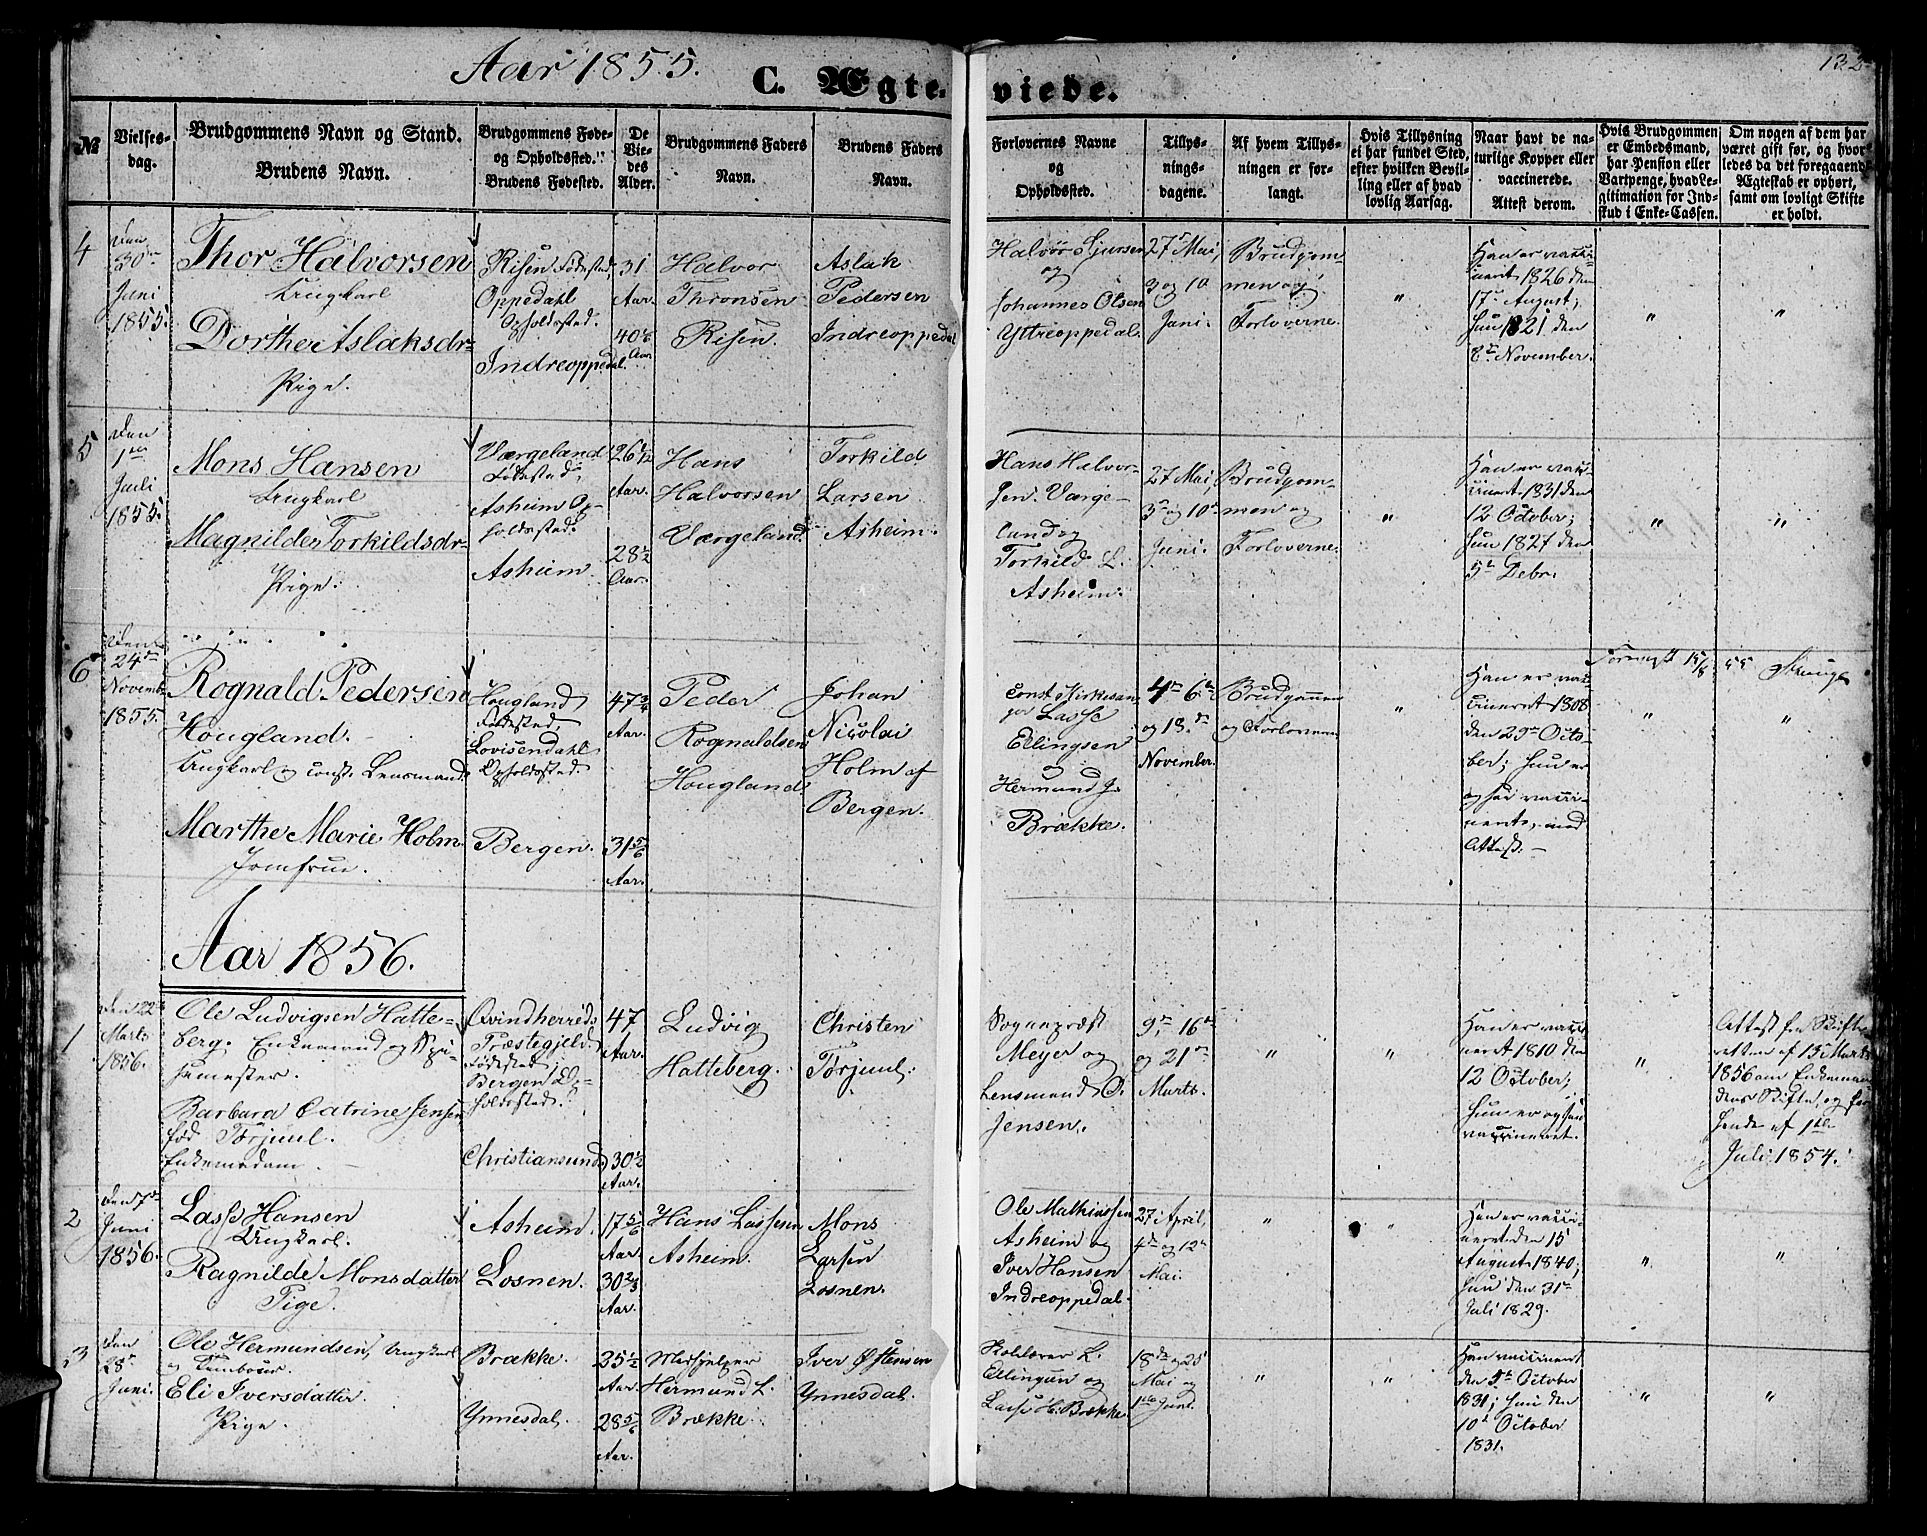 Aar 1855.
C. Ægteviede.
132
№
Vielses-
dag.
Brudgommens Navn og Stand.
Brudens Navn.
Brudgommens Føde-
og Opholdssted.
Brudens Fødested.
De
Vie-
des
Alder.
Brudgommens Faders
Navn.
Brudens Faders
Navn.
Forlovernes Navne
og
Opholdssted.
Tillys-
nings-
dagene.
Af hvem Tillys-
ningen er for-
langt.
Hvis Tillysning
ei har fundet Sted,
efter hvilken Bevil-
ling eller af hvad
lovlig Aarsag.
Naar havt de na-
turlige Kopper eller
vaccinerede.
Attest derom.
Hvis Brudgommen
er Embedsmand,
har Pension eller
Vartpenge, hvad Le-
gitimation for Ind-
skud i Enke-Cassen.
Om nogen af dem har
været gift før, og hvor-
ledes da det foregaaende
Ægteskab er ophørt,
samt om lovligt Skifte
er holdt.
4
den
30te
Juni
1855.
Thor Halvorsen
Ungkarl
Dorthe Aslaksdr
Pige.
Risen Fødested,
Oppedahl
Opholdssted.
Indreoppedal
31
Aar.
40
Aar.
Halvor
Thronsen
Risen
Aslak
Pedersen
Indreoppedal
Halvor Sjursen
og
Johannes Olsen
Yttreoppedal.
27de Mai,
3 og 10
Juni.
Brudgom-
men og
Forloverne.
"
Han er vacci-
neret 1826 den
17de August;
hun 1821 den
8de November.
"
"
5
Den
1ste
Juli
1855.
Mons Hansen
Ungkarl
Magnilde Torkildsdr
Pige.
Værgeland
Fødested,
Asheim Op-
holdssted.
Asheim
26
Aar.
28½
Aar.
Hans
Halvorsen
Værgeland.
Torkild
Larsen
Asheim.
Hans Halvor-
sen Værge-
land og
Torkild L.
Asheim.
27 Mai,
3de og 10de
Juni.
Brudgom-
men og
Forloverne.
"
Han er vacci-
neret 1831 den
12 October;
hun 1827 den
5te Debr.
"
"
6
Den
24de
Novemb.
1855.
Rognald Pedersen
Hougland.
Ungkarl og const. Lensmand.
Marthe Marie Holm
Jomfrue.
Hougland
Fødested,
Lovisendahl
Opholdssted.
Bergen.
47¾
Aar.
31⅚
Aar.
Peder
Rognaldsen
Hougland
Johan
Nicolai
Holm af
Bergen.
Const. Kirkesan-
ger Lasse
Ellingsen
og
Hermund J.
Brække.
4de 6te
og 18de
November.
Brudgommen
og Forloverne
"
Han er vac-
cineret 1808
den 29de Octo-
ber; hun er
og saa vacci-
neret, med
Attest.
15/8 55
"
"
Aar 1856.
1
Den 22de
Marts
1856.
Ole Ludvigsen Hatte-
berg. Enkemand og Spi-
semester.
Barbara Catrine Jensen
fød Törjuul.
Enkemadam.
Qvindherreds
Præstegjeld
Fødested,
Bergen Op-
holdssted.
Christiansund
47
Aar.
30½
Aar.
Ludvig
Hatteberg.
Christen
Törjuul.
Sognepræst
Meyer og
Lensmand O.
Jensen.
9de, 16de
og 21de
Marts.
"
"
Han er vacci-
neret 1810 den
12 October;
hun er og saa
vaccineret.
"
Attest fra Skifte-
retten af 15de Marts
1856 om Enkeman-
dens Skifte, og for
hende af 1ste
Juli 1854.
2
Den 7de
Juni
1856.
Lasse Hansen
Ungkarl.
Ragnilde Monsdatter
Pige.
Asheim.
Losnen.
17⅚
Aar.
30⅔
Aar.
Hans Lassesen
Asheim.
Mons
Larsen
Losnen.
Ole Mathiassen
Asheim og
Iver Hansen
Indreoppedal.
27 April,
4de og 12te
Mai.
"
"
Han er vacci-
neret den 15
August 1840;
hun den 31te
Juli 1829.
"
"
3
Den
28de
Juni.
Ole Hermundsen, Ungkarl
og Tambour.
Eli Iversdatter.
Pige.
Brække.
Ynnesdal.
25½
Aar.
28⅚
Aar.
Medhjelper
Hermund L.
Brække.
Iver Østensen
Ynnesdal.
Kold L.
Ellingsen og
Lasse H. Brække.
18de og 25
Mai og
1ste Juni.
"
"
Han vaccineret
den 5te October
1831; hun den
10de October
1831.
"
"